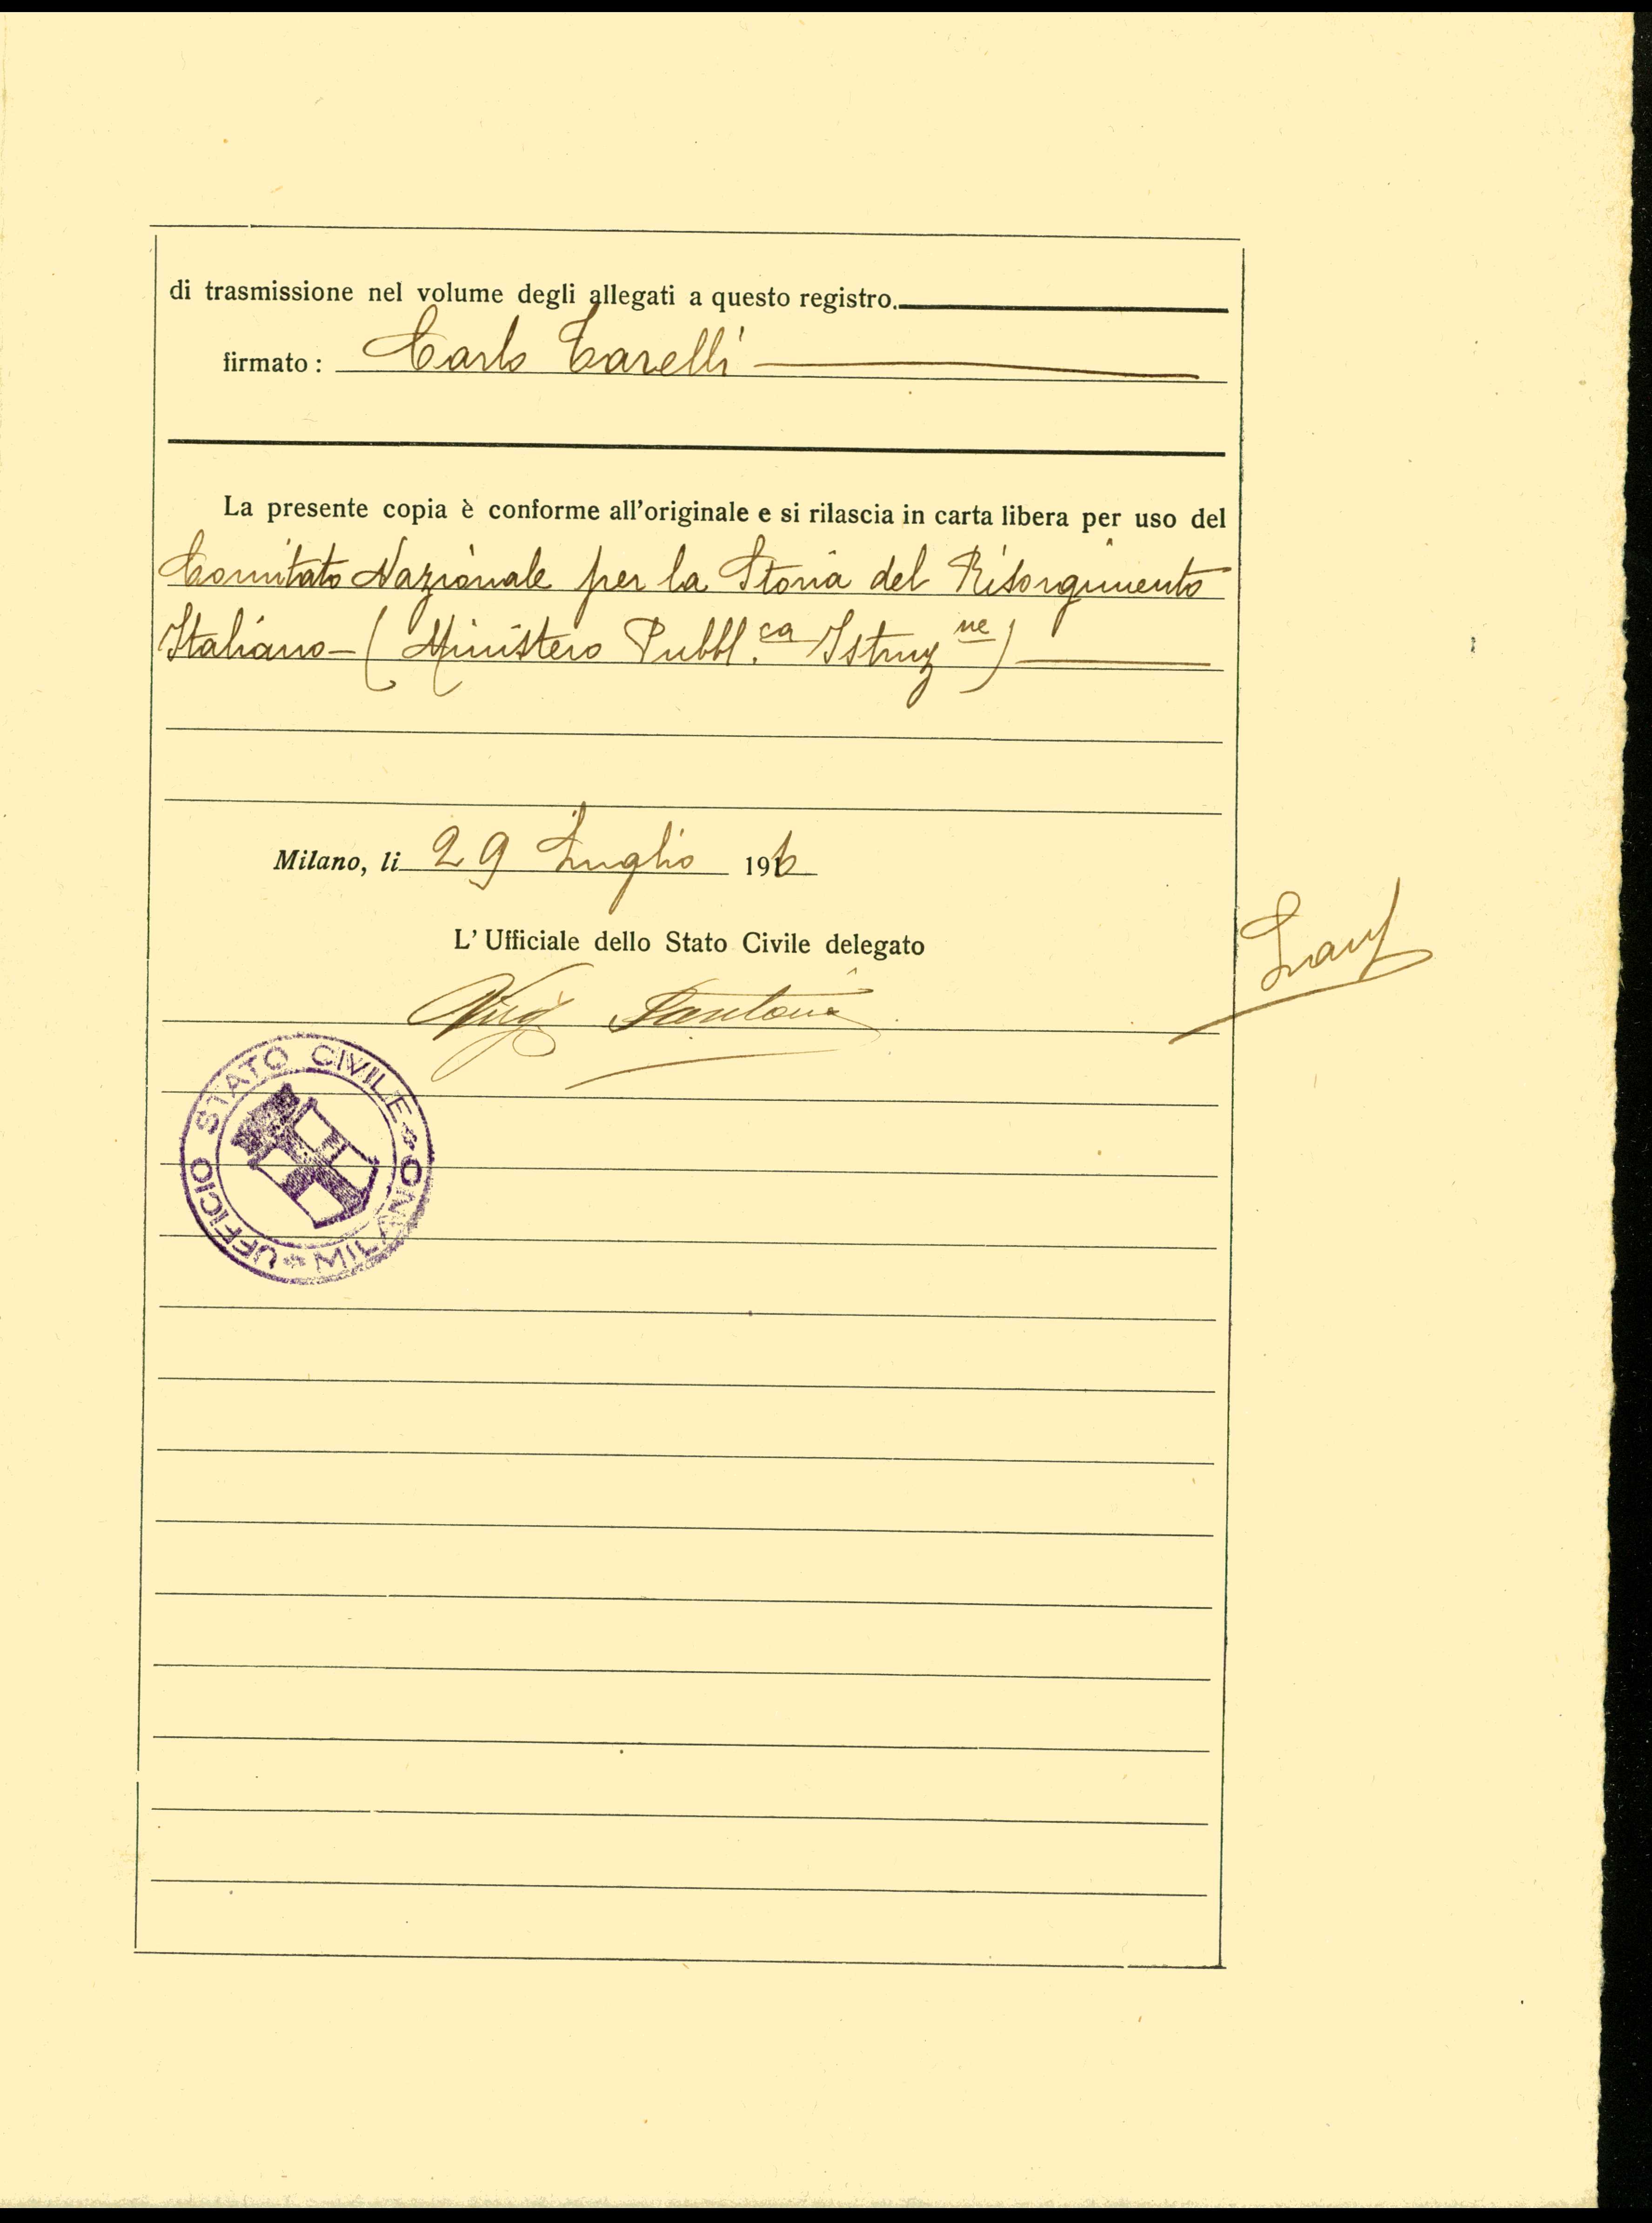 di trasmissione nel volume degli allegati a questo registro.
firmato: Carlo Carelli
La presente copia è conforme all'originale e si rilascia in carta libera per uso del
Comitato Nazionale per la Storia del Risorgimento
Italiano - (Ministero Pubbl.ca Istruzne)
Milano, li 29 Luglio 1916
L'Ufficiale dello Stato Civile delegato
Santoni
UFFICIO STATO CIVILE * MILANO *